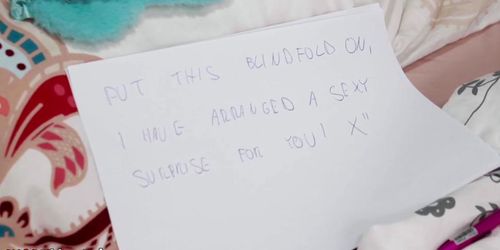 PUT THIS BLINDFOLD ON,
I HAVE ARRANGED A SEXY
SURPRISE FOR YOU! X"